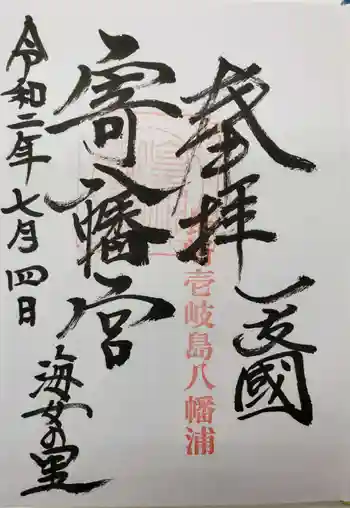 奉拝
一支國
壱岐島八幡浦
寄八幡宮
海女の里
令和二年七月四日